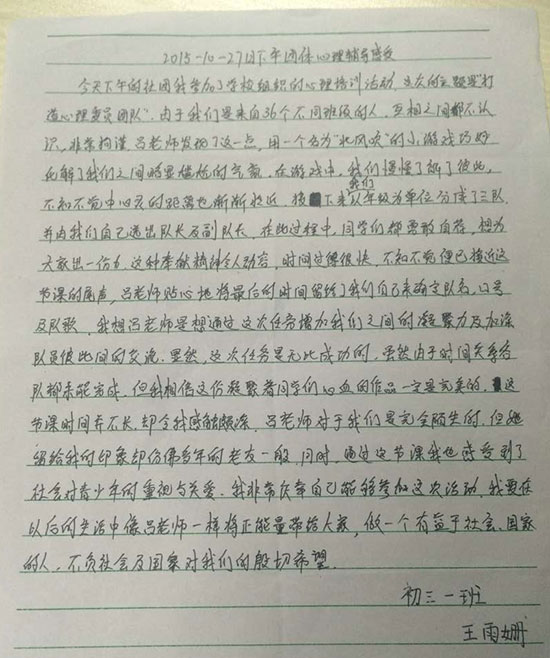 2015-10-27日下午团体心理辅导感受
今天下午的社团我参加了学校组织的心理培训活动,这次的主题是"打
造心理委员团队"。由于我们是来自36个不同班级的人,互相之间都不认
识,非常拘谨,吕老师发现了这一点,用一个名为"北风吹"的小游戏巧妙
的解了我们之间略显尴尬的气氛。在游戏中,我们慢慢了解了彼此,
不知不觉中心灵的距离也渐渐拉近。接下来我们以年级为单位分成了三队,
并由我们自己选出队长及副队长。在此过程中,同学们都勇敢自荐,想为
大家出一份力,这种奉献精神令人动容,时间过得很快,不知不觉便已接近这
节课的尾声,吕老师贴心地将最后的时间留给了我们自己来确定队名,口号
及队歌,我想吕老师是想通过这次任务增加我们之间的凝聚力及加深
队员彼此间的交流。果然,这次任务是无比成功的,虽然由于时间关系各
队都未能完成,但我相信这份凝聚着同学们心血的作品一定是完美的。这
节课时间并不长,却令我感触颇深,吕老师对于我们是完全陌生的,但她
留给我的印象却仿佛多年的老友一般,同时,通过这节课我也感受到了
社会对青少年的重视与关爱。我非常庆幸自己能够参加这次活动,我要在
以后的生活中像吕老师一样将正能量带给大家,做一个有益于社会、国家
的人,不负社会及国家对我们的殷切希望。
初三一班
王雨姗